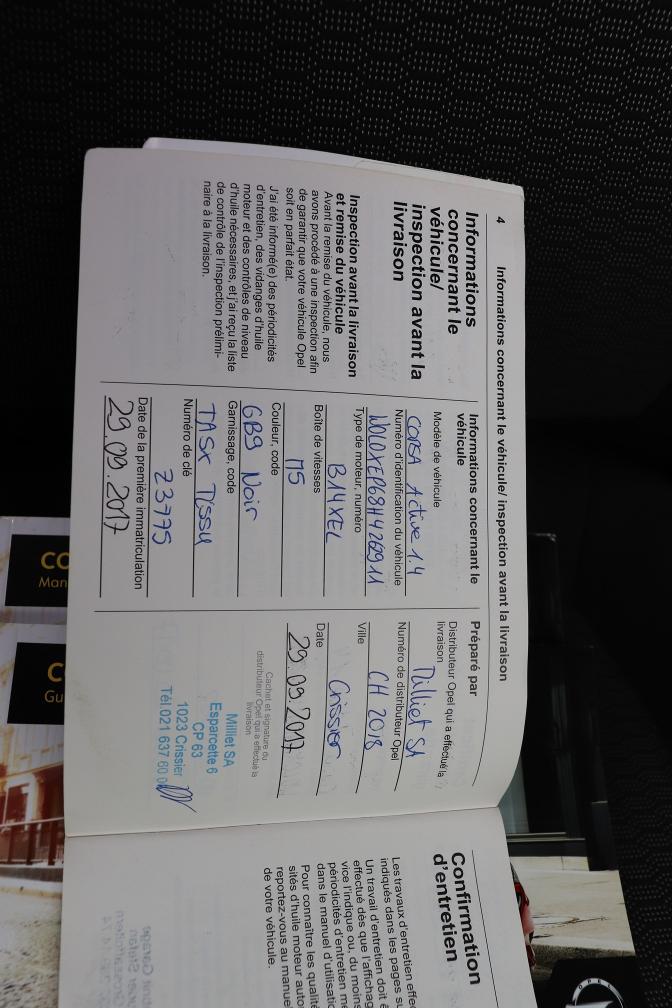 4 Informations concernant le véhicule/ inspection avant la livraison
Informations
concernant le
véhicule/
inspection avant la
livraison
Inspection avant la livraison
et remise du véhicule
Avant la remise du véhicule, nous
avons procédé à une inspection afin
de garantir que votre véhicule Opel
soit en parfait état.
J'ai été informé(e) des périodicités
d'entretien, des vidanges d'huile
moteur et des contrôles de niveau
d'huile nécessaires, et j'ai reçu la liste
de contrôle de l'inspection prélimi-
naire à la livraison.
Informations concernant le
véhicule
Modèle de véhicule
CORSA Active 1.4
Numéro d'identification du véhicule
W0L0XEP68H4262911
Type de moteur, numéro
B14XEL
Boîte de vitesses
M5
Couleur, code
GB9 Noir
Garnissage, code
TASX Tissu
Numéro de clé
Z3775
Date de la première immatriculation
29.09.2017
Préparé par
Distributeur Opel qui a effectué la
livraison
Milliet SA
Numéro de distributeur Opel
CH 2018
Ville
Crissier
Date
29.09.2017
Cachet et signature du
distributeur Opel qui a effectué la
livraison
Milliet SA
Esparcette 6
CP 63
1023 Crissier
Tél.021 637 60 0
Confirmation
d'entretien
Les travaux d'entretien effe
indiqués dans les pages su
Un travail d'entretien doit ê
effectué dès que l'affichag
vice l'indique ou, du moins
périodicités d'entretien me
dans le manuel d'utilisatio
Pour connaître les qualité
sités d'huile moteur auto
reportez-vous au manue
de votre véhicule.
CO
Man
C
Gu
OPEL